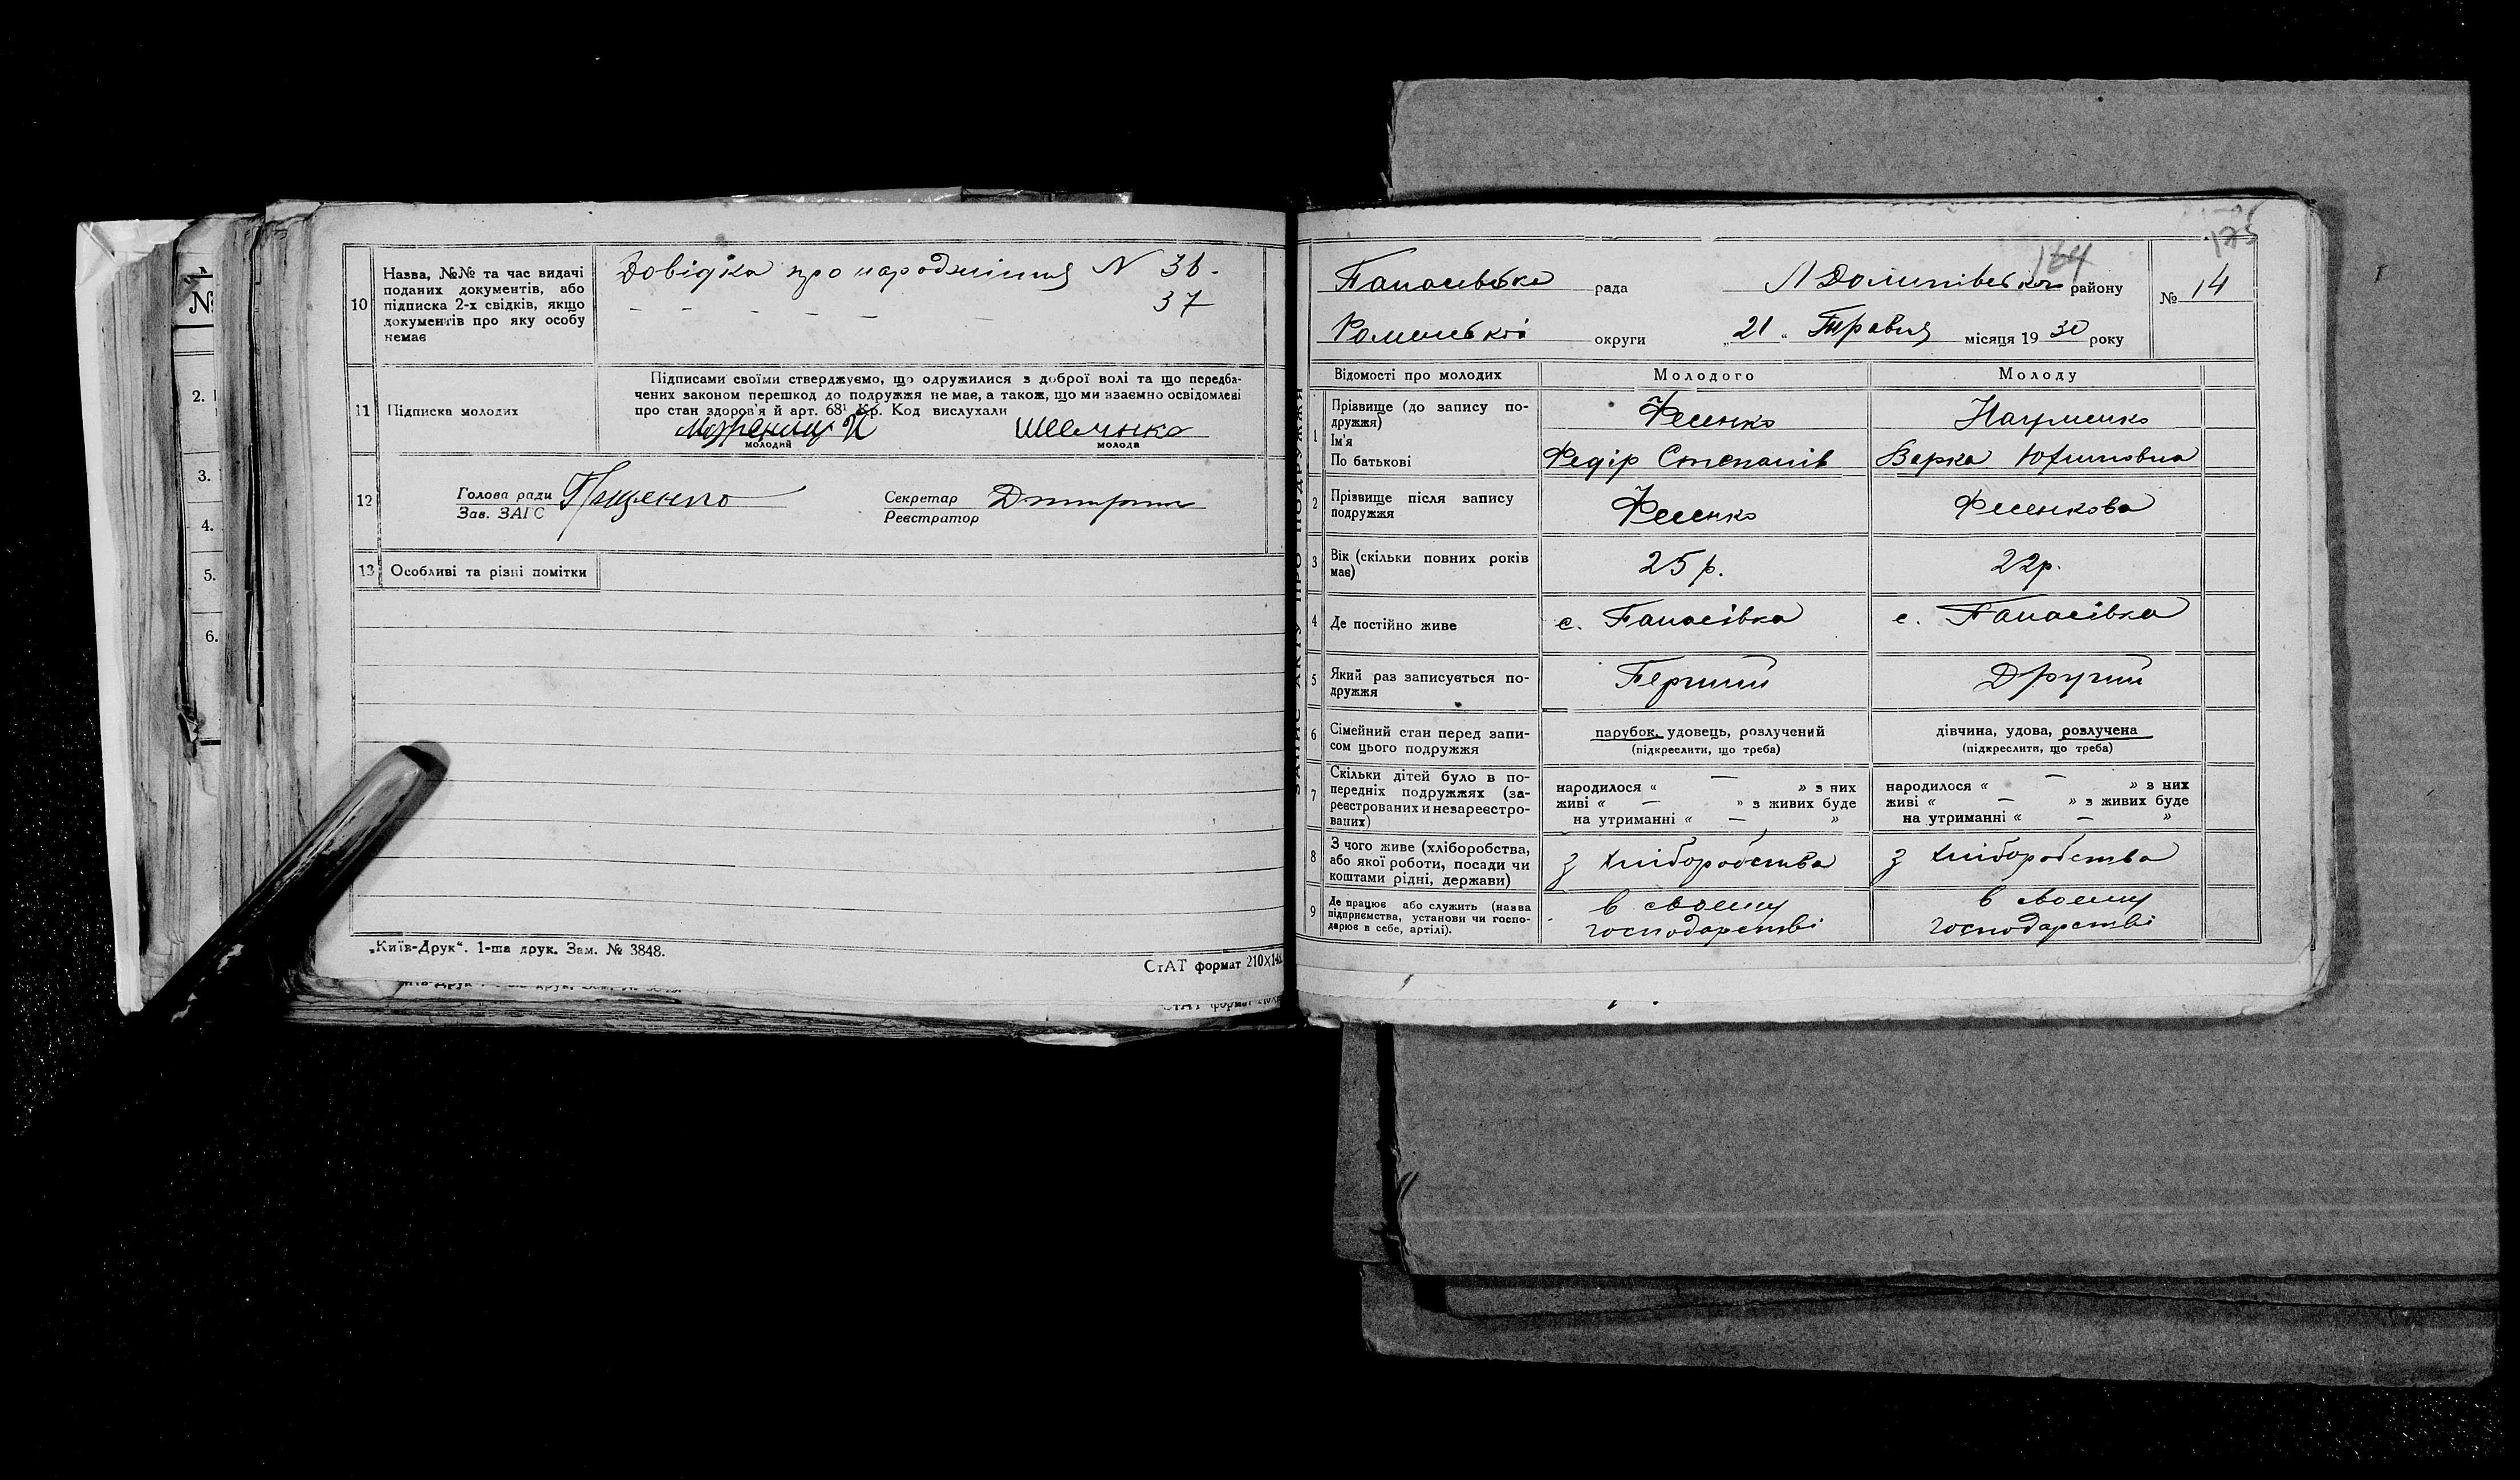 10 Назва, №№ та час видачі
поданих документів, або
підписка 2-х свідків, якщо
документів про яку особу
немає
Довідка про народження N 36 -
- - - - - 37
11 Підписка молодих
Підписами своїми стверджуємо, що одружилися з доброї волі та що передба-
чених законом перешкод до подружжя не має, а також, що ми взаємно освідомлені
про стан здоров'я й арт. 68¹ Кр. Код вислухали
молодий
молода
12 Голова ради
Зав. ЗАГС
Секретар
Реєстратор
13 Особливі та різні помітки
„Київ-Друк“. 1-ша друк. Зам. № 3848.
СтАТ формат 210X148
№
2.
3.
4.
5.
6.
175
164
Панасівська рада
району
№ 14
Роменської округи „21“ Травня місяця 1930 року
Відомості про молодих
Молодого
Молоду
1 Прізвище (до запису по-
дружжя)
Ім'я
По батькові
Фесенко
Федір Степанів
Науменко
Варка Юхимовна
2 Прізвище після запису
подружжя
Фесенко
Фесенкова
3 Вік (скільки повних років
має)
25 р.
22 р.
4 Де постійно живе
с. Панасівка
с. Панасівка
5 Який раз записується по-
дружжя
Перший
Другий
6 Сімейний стан перед запи-
сом цього подружжя
парубок, удовець, розлучений
(підкреслити, що треба)
дівчина, удова, розлучена
(підкреслити, що треба)
7 Скільки дітей було в по-
передніх подружжях (за-
реєстрованих и незареєстро-
ваних)
народилося « — » з них
живі « — » з живих буде
на утриманні « — »
народилося « — » з них
живі « — » з живих буде
на утриманні « — »
8 З чого живе (хліборобства,
або якої роботи, посади чи
коштами рідні, держави)
з хліборобства
з хліборобства
9 Де працює або служить (назва
підприємства, установи чи госпо-
дарює в себе, артілі).
в своєму
господарстві
в своєму
господарстві